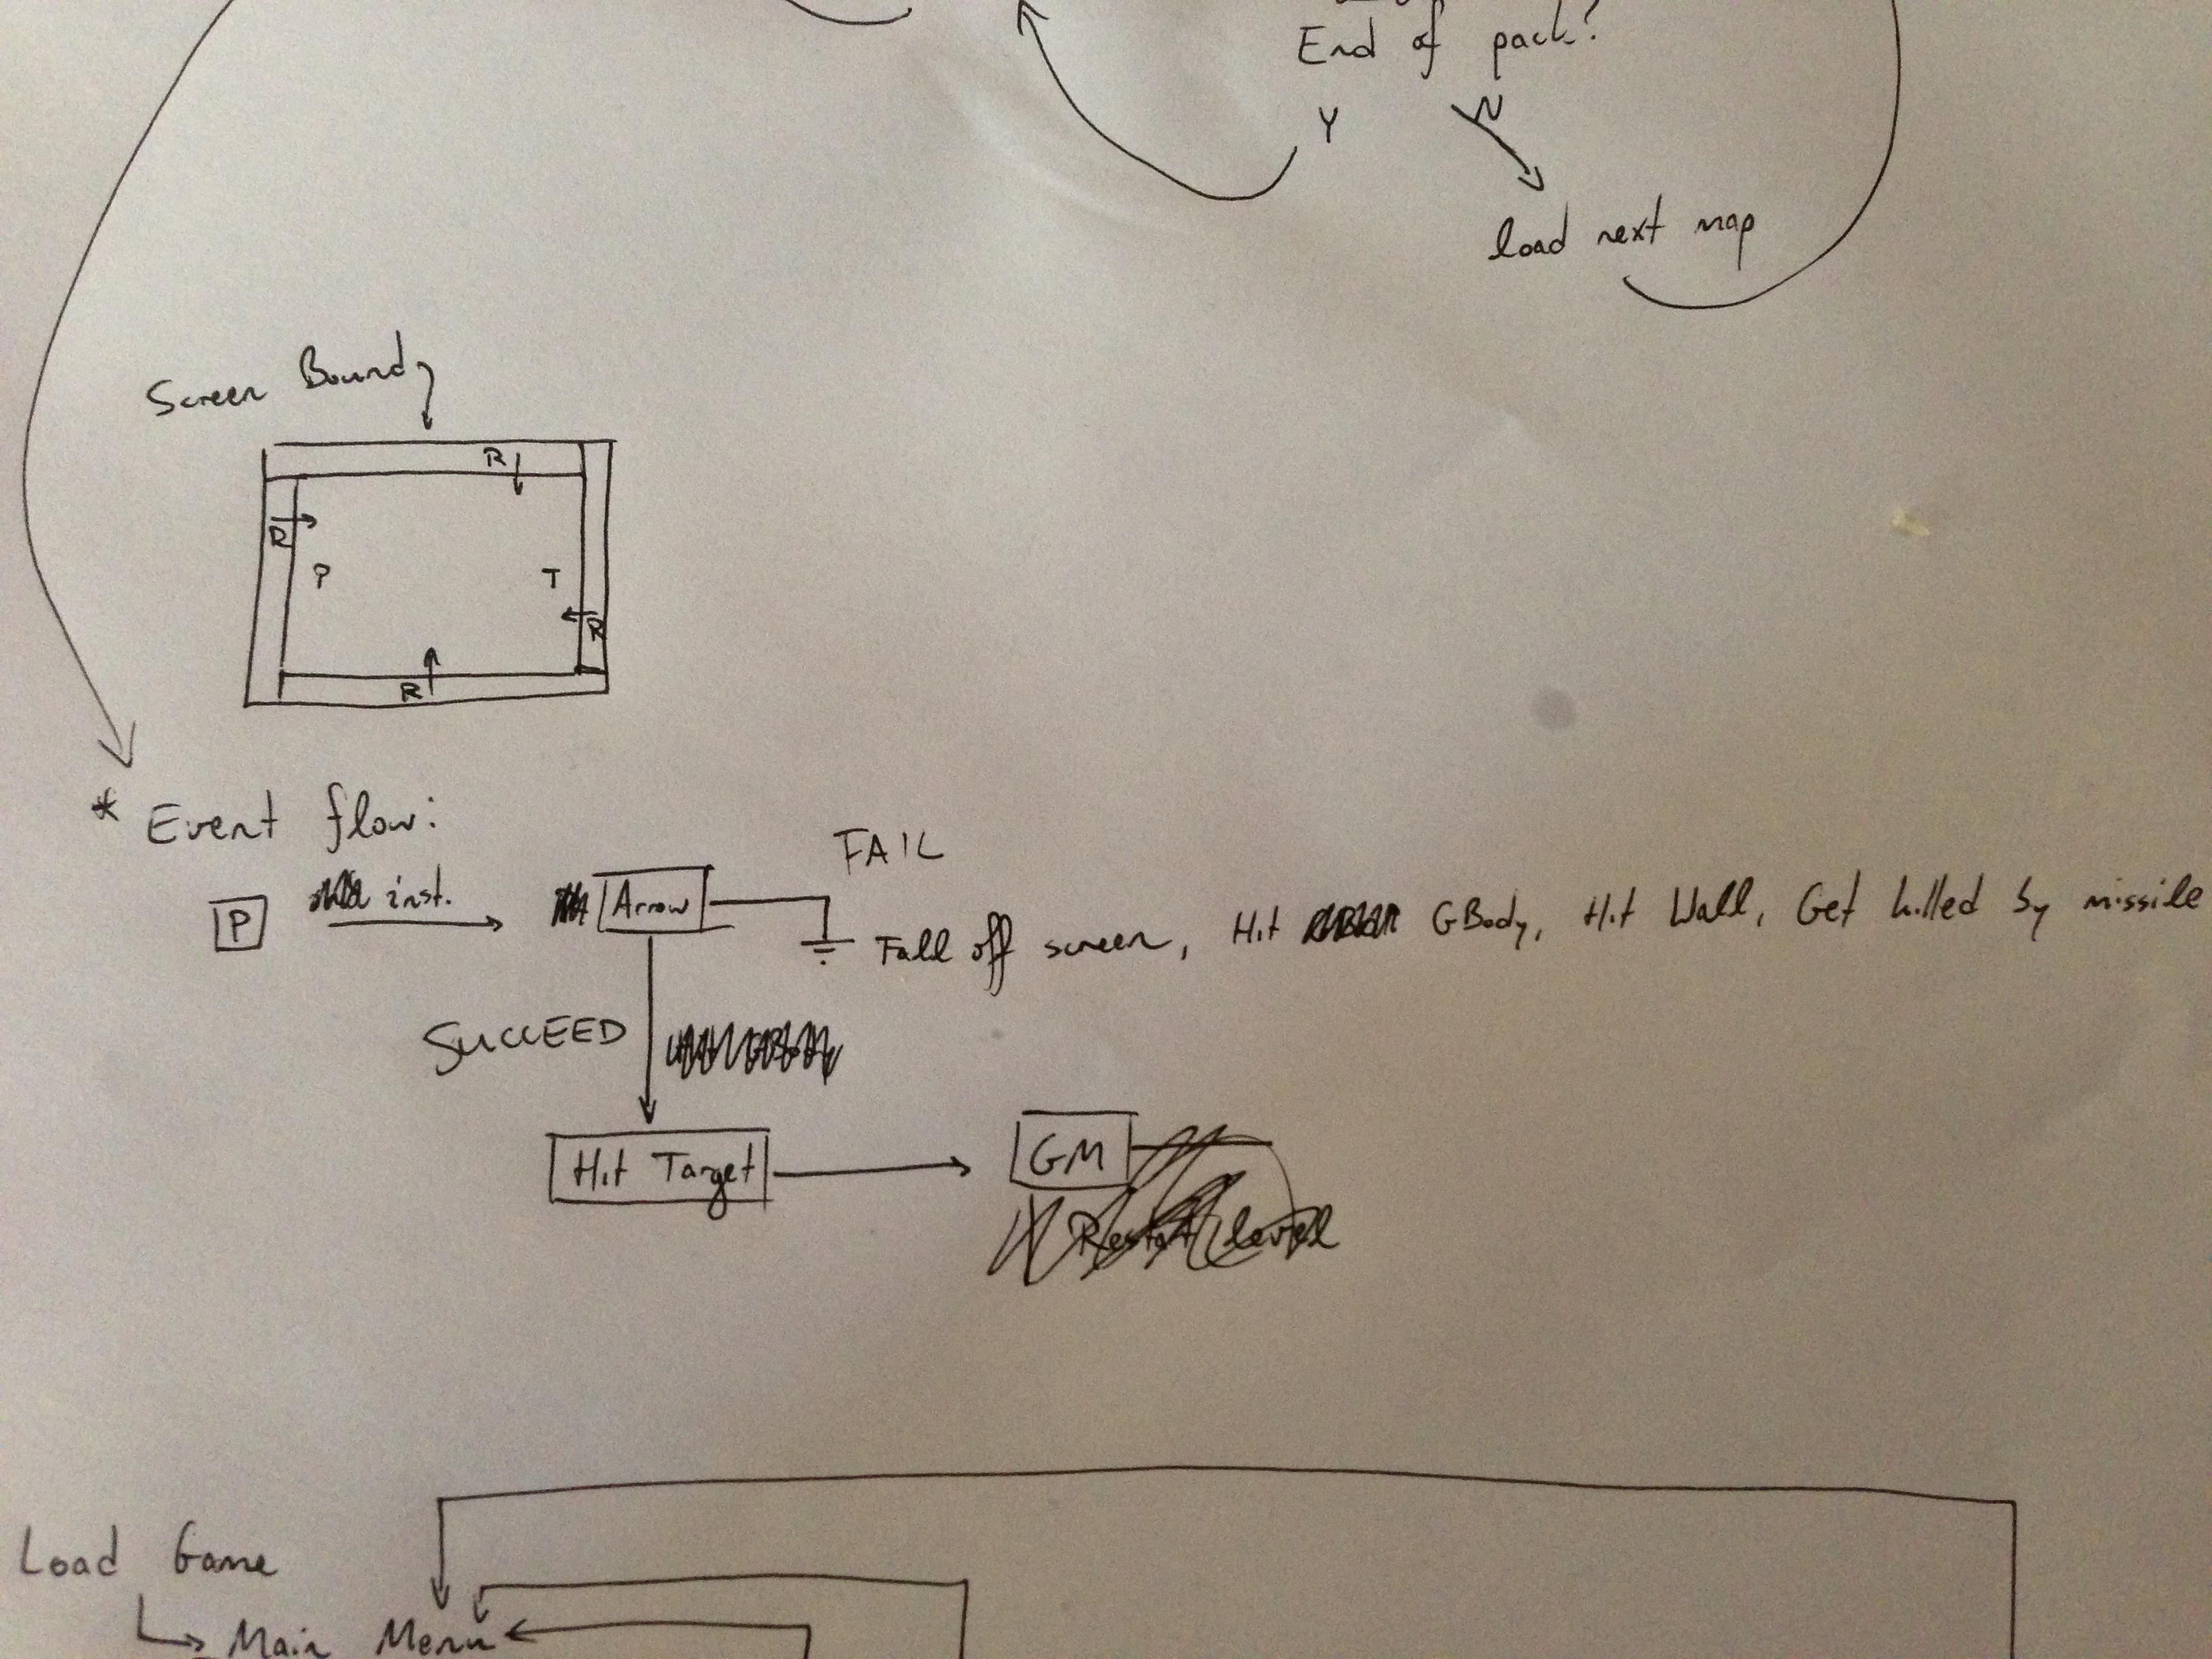 End of pack?
Y
N
load next map
Screen Bounds
R
R
P
T
R
R
* Event flow:
P
inst.
Arrow
FAIL
Fall off screen, Hit GBody, Hit Wall, Get killed by missile
SUCCEED
Hit Target
GM
Restart level
Load Game
Main Menu